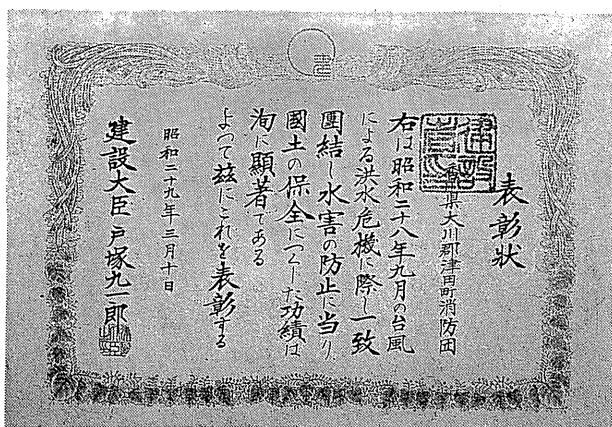 表彰状
香川県大川郡津田町消防団
右は昭和二十八年九月の台風
による洪水危機に際し一致
団結し水害の防止に当り
國土の保全につくした功績は
洵に顕著である
よって茲にこれを表彰する
昭和二十九年三月十日
建設大臣戸塚九一郎